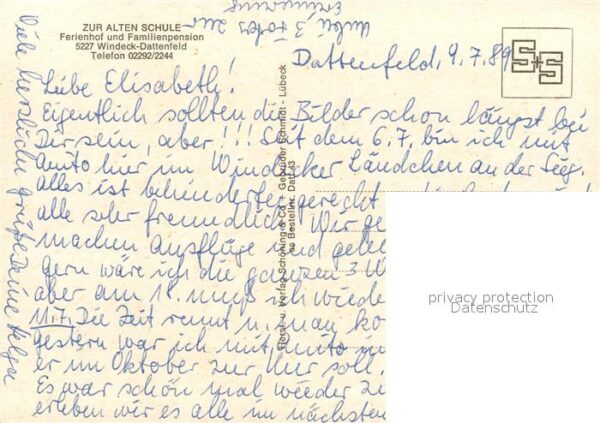 ZUR ALTEN SCHULE
Ferienhof und Familienpension
5227 Windeck-Dattenfeld
Telefon 02292/2244
Anbei 3 Fotos zur
Erinnerung
S+S
Dattenfeld, 9.7.89
Liebe Elisabeth!
Eigentlich sollten die Bilder schon längst bei
Dir sein, aber!!! Seit dem 6.7. bin ich mit
hier im Windecker Ländchen an der Sieg.
Alles ist behindertengerecht
alle sehr freundlich. Wir ge
machen Ausflüge und
gern wäre ich die ganzen 3 W
aber am 11. muß ich wiede
11.7. Die Zeit rennt u. man ko
gestern war ich mit
er im Oktober zur Kur soll.
Es war schön mal wieder
erleben wir es alle im nächsten
Viele herzliche Grüße Deine Helga
Horst u. Verlag Schöning & Co + Gebrüder Schmidt - Lübeck
Bestellnr. Datt 43
privacy protection
Datenschutz